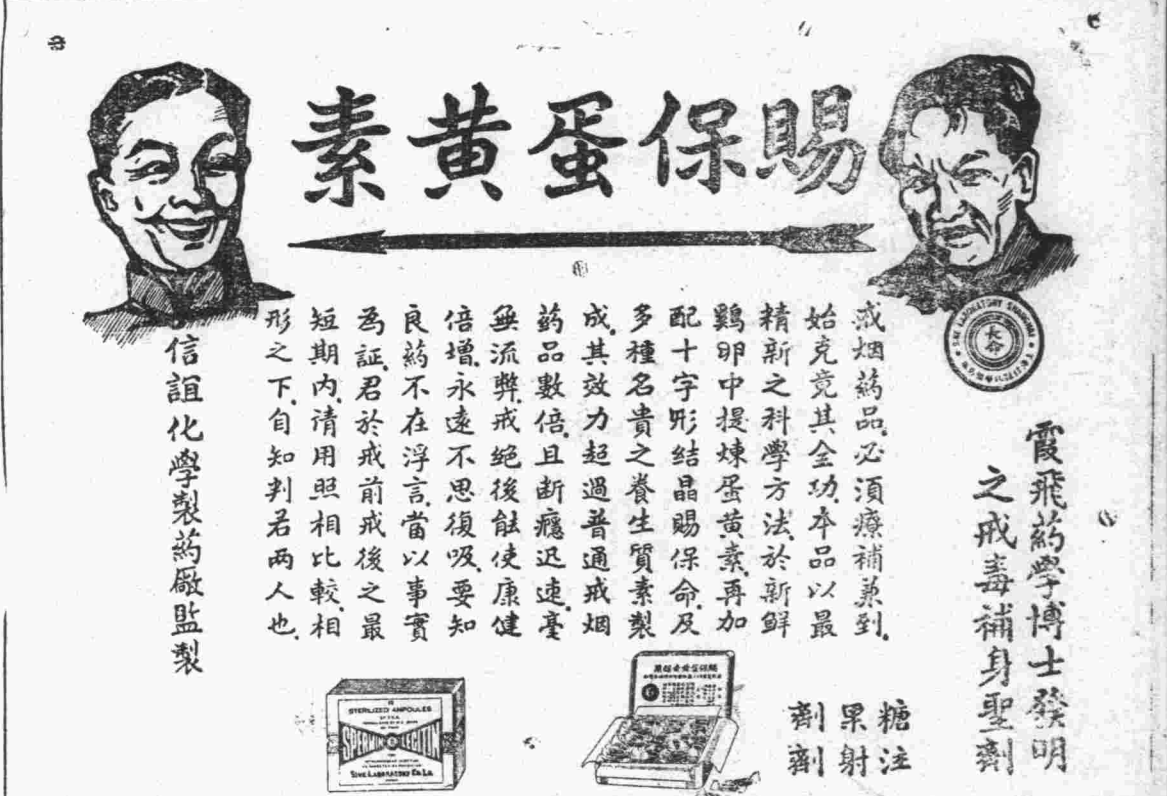 賜保蛋黃素
霞飛葯學博士發明
之戒毒補身聖劑
戒烟葯品必須療補兼到
始克竟其全功本品以最
精新之科學方法於新鮮
鷄卵中提煉蛋黃素再加
配十字形結晶賜保命及
多種名貴之養生質素製
成其效力超過普通戒烟
葯品數倍且断癮迅速毫
無流弊戒絕後能使康健
倍增永遠不思復吸要知
良葯不在浮言當以事實
為証君於戒前戒後之最
短期內請用照相比較相
形之下自知判若两人也
信誼化學製葯廠監製
糖果劑
注射劑
長命
STERILIZED AMPOULES
SPERMIN LECITIN
SINE LABORATORY